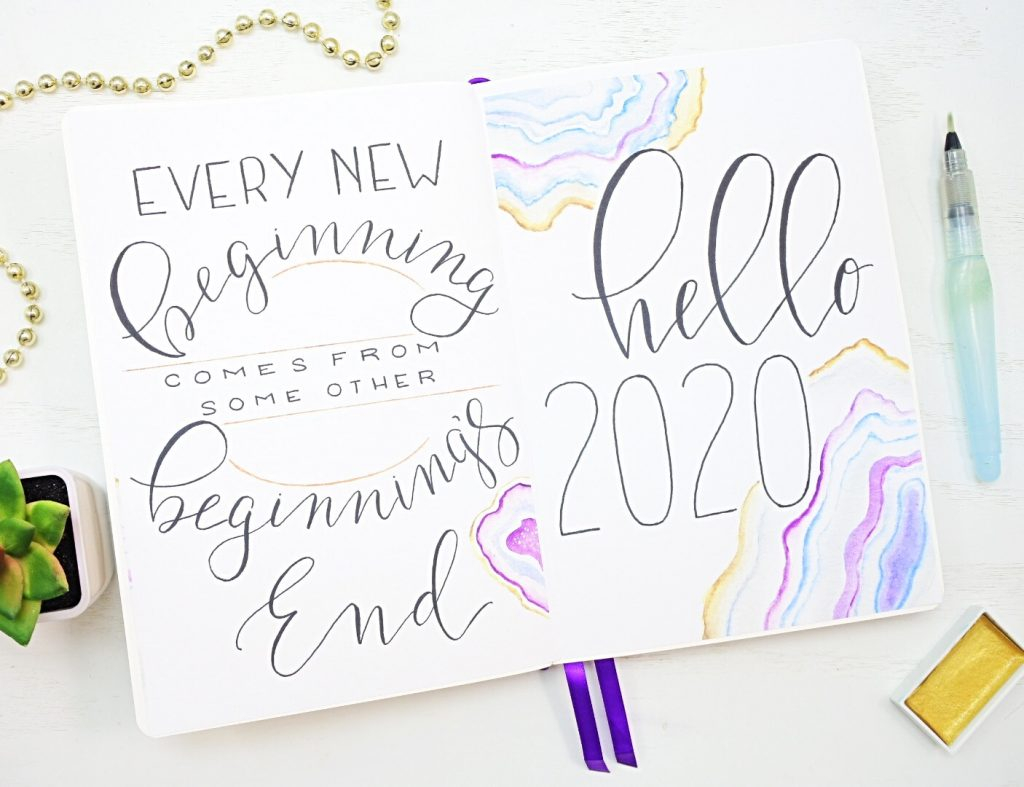 EVERY NEW
beginning
COMES FROM
SOME OTHER
beginning's
End
hello
2020